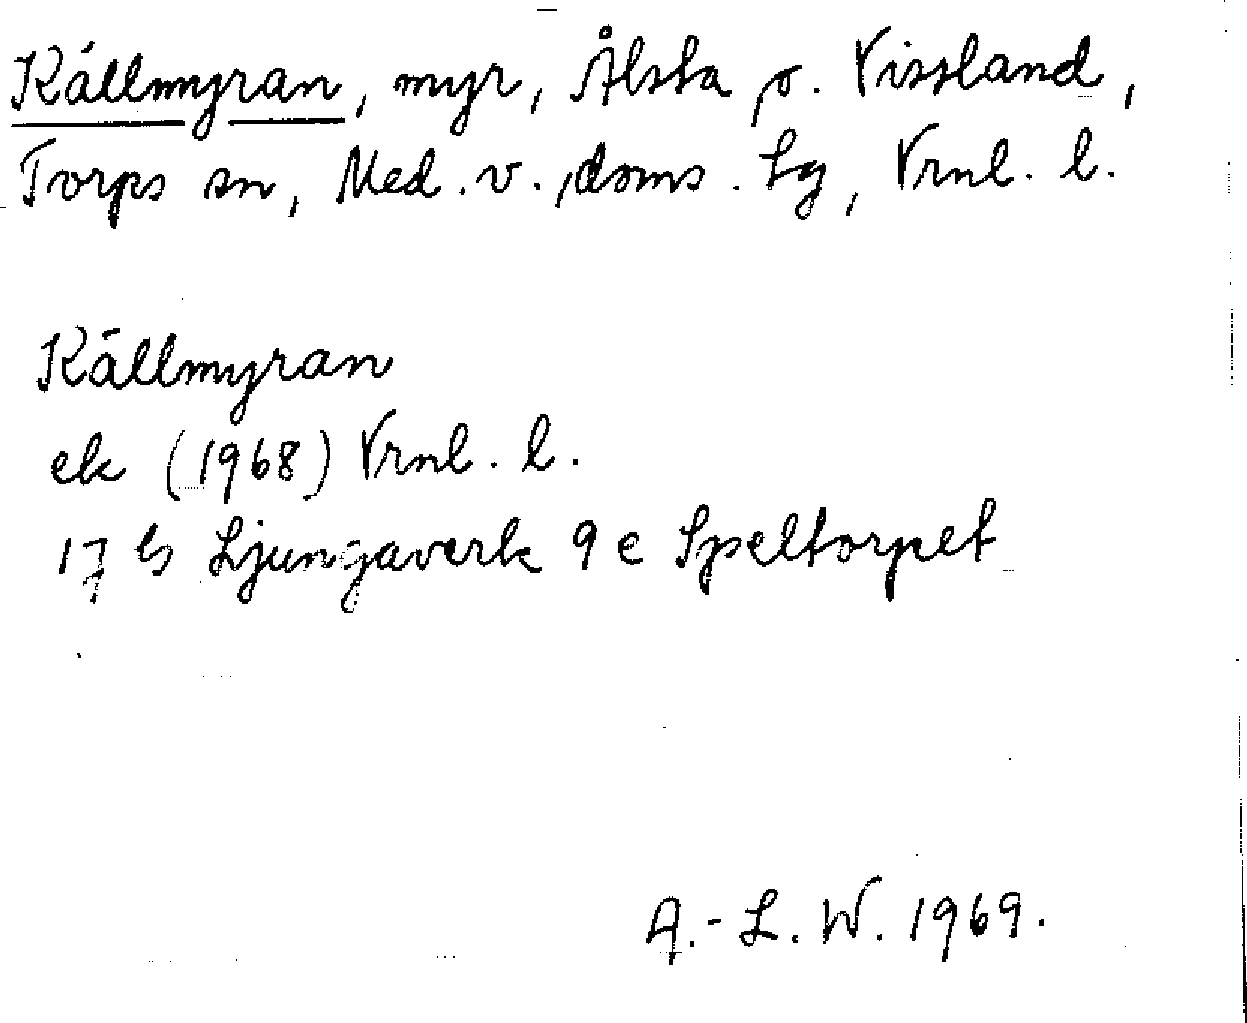 Källmyran, myr, Ålsta o. Vissland,
Torps sn, Med. v. doms. Lg, Vrnl. l.
Källmyran
ek (1968) Vrnl. l.
17 G Ljungaverk 9 e Speltorpet
A.-L. W. 1969.